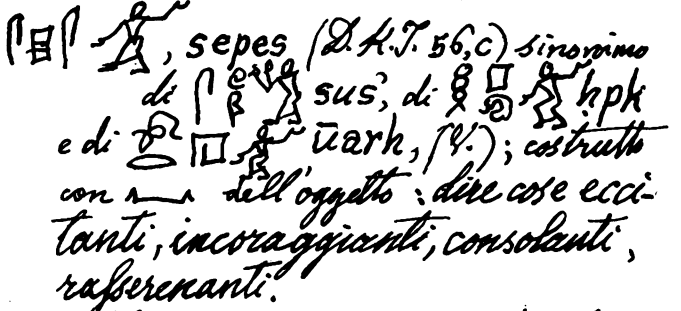 , sepes (D.H.T. 56,c) sinonimo
di sus, di ḥpk
e di ūarh, (V.); costrutto
con dell'oggetto : dire cose ecci-
tanti, incoraggianti, consolanti,
rasserenanti.